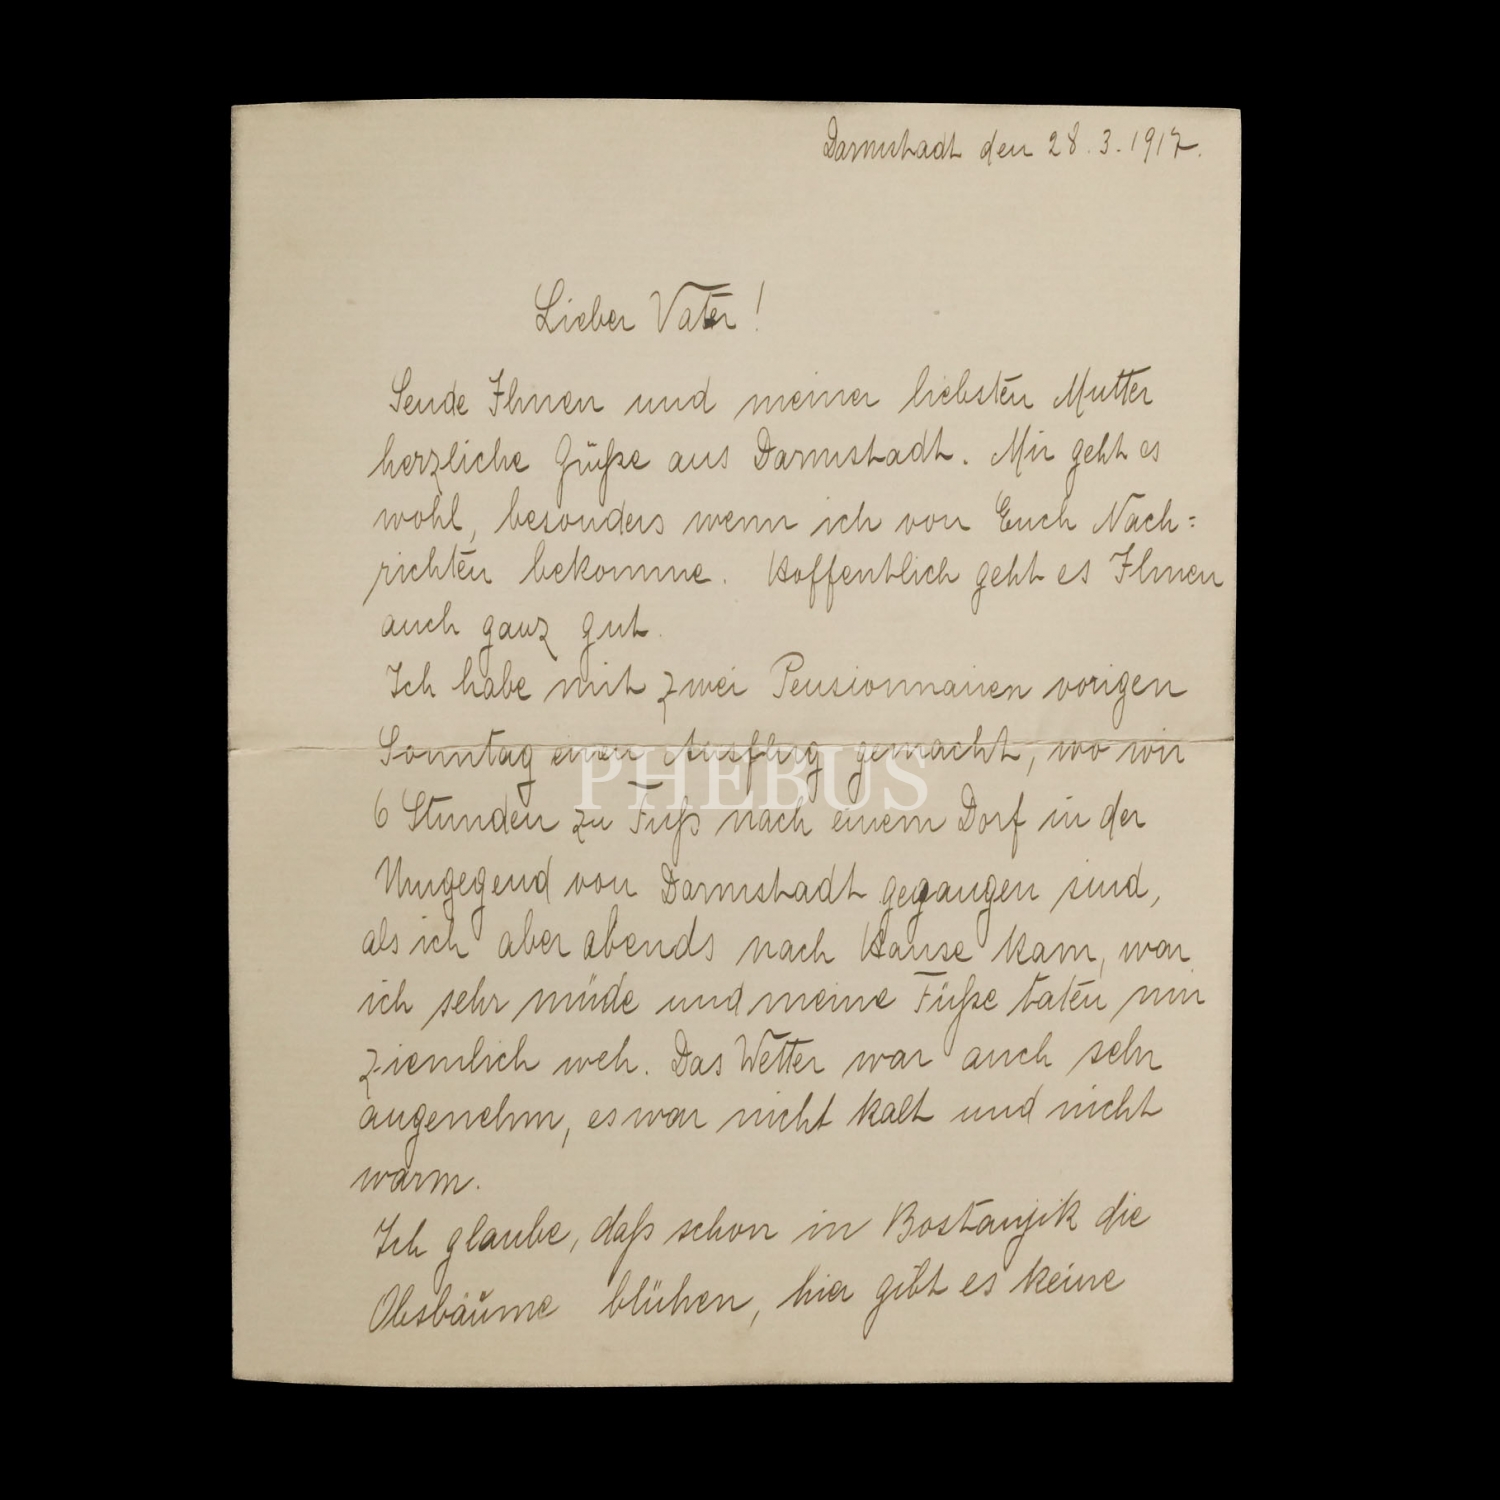 Darmstadt den 28.3.1917.
Lieber Vater!
Sende Ihnen und meiner liebsten Mutter
herzliche Grüße aus Darmstadt. Mir geht es
wohl, besonders wenn ich von Euch Nach=
richten bekomme. Hoffentlich geht es Ihnen
auch ganz gut.
Ich habe mit zwei Pensionnairen vorigen
Sonntag einen Ausflug gemacht, wo wir
PHEBUS
6 Stunden zu Fuß nach einem Dorf in der
Umgegend von Darmstadt gegangen sind,
als ich aber abends nach Hause kam, war
ich sehr müde und meine Füße taten mir
ziemlich weh. Das Wetter war auch sehr
angenehm, es war nicht kalt und nicht
warm.
Ich glaube, daß schon in Bostanjik die
Obsbäume blühen, hier gibt es keine